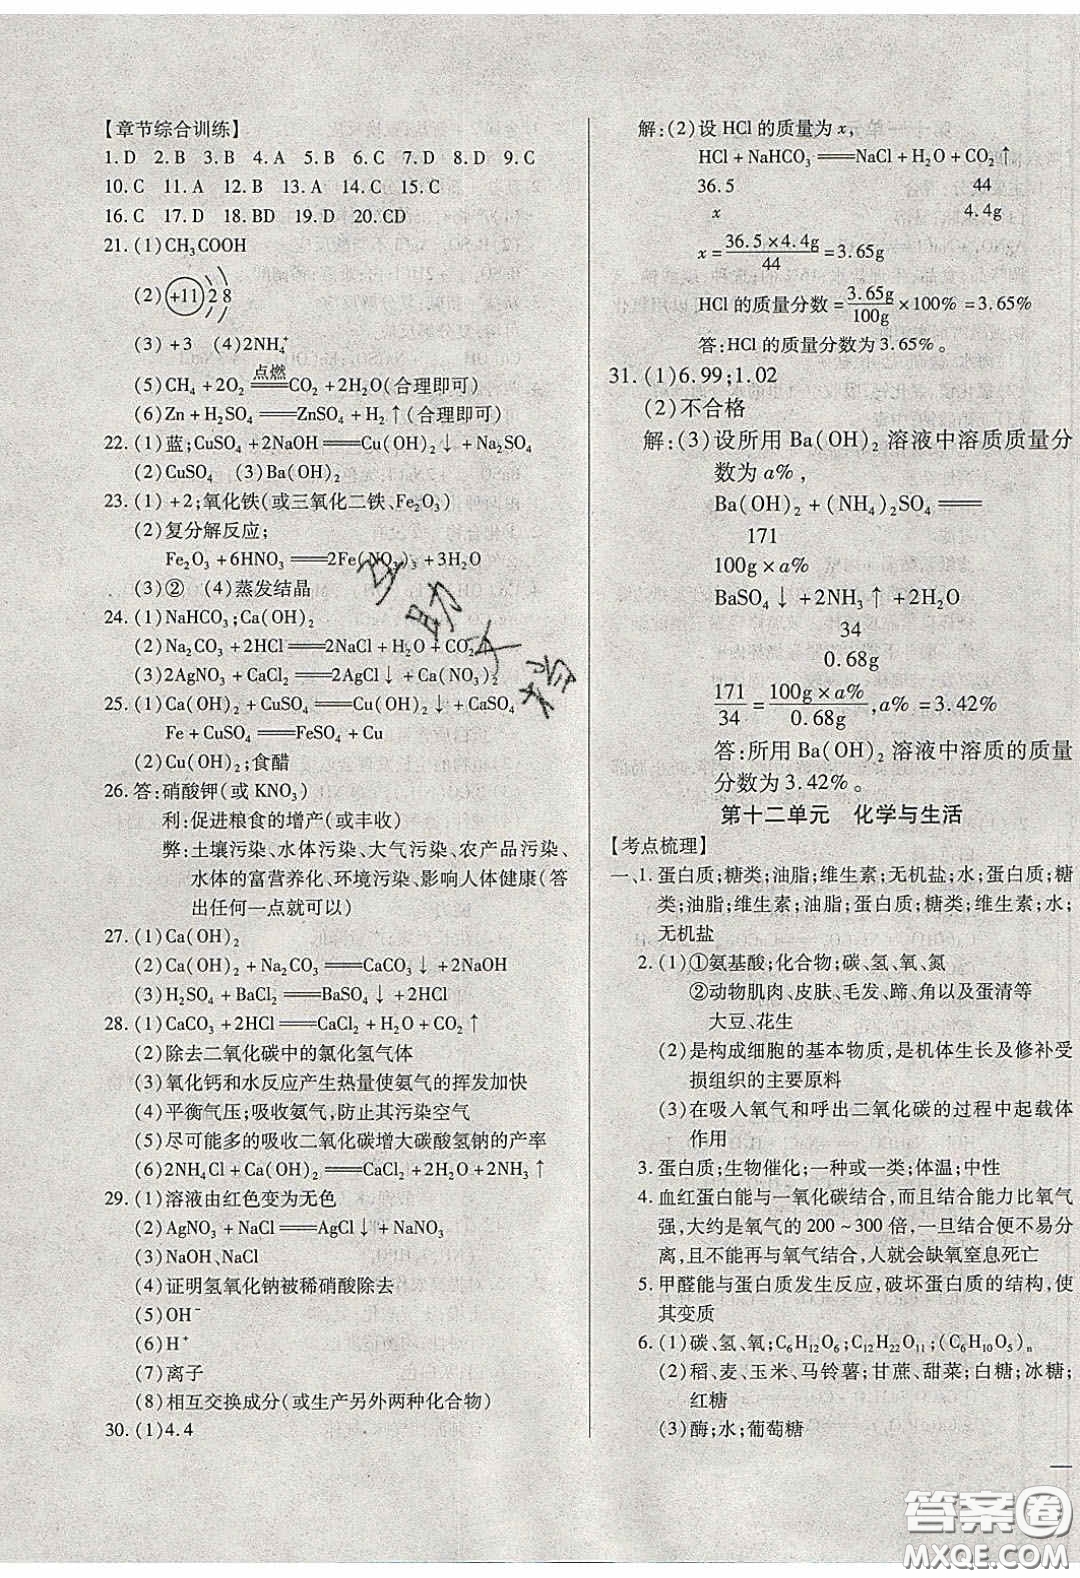 【章节综合训练】
1. D 2. B 3. B 4. A 5. B 6. C 7. D 8. D 9. C
10. C 11. A 12. B 13. A 14. C 15. C
16. C 17. D 18. BD 19. D 20. CD
21. (1)CH₃COOH
(2) +11 2 8
(3) +3 (4)2NH₄⁺
(5)CH₄ + 2O₂ 点燃 ═══ CO₂ + 2H₂O(合理即可)
(6)Zn + H₂SO₄ ═══ ZnSO₄ + H₂↑(合理即可)
22. (1)蓝;CuSO₄ + 2NaOH ═══ Cu(OH)₂↓ + Na₂SO₄
(2)CuSO₄ (3)Ba(OH)₂
23. (1) +2;氧化铁(或三氧化二铁、Fe₂O₃)
(2)复分解反应;
Fe₂O₃ + 6HNO₃ ═══ 2Fe(NO₃)₃ + 3H₂O
(3)② (4)蒸发结晶
24. (1)NaHCO₃;Ca(OH)₂
(2)Na₂CO₃ + 2HCl ═══ 2NaCl + H₂O + CO₂↑
(3)2AgNO₃ + CaCl₂ ═══ 2AgCl↓ + Ca(NO₃)₂
25. (1)Ca(OH)₂ + CuSO₄ ═══ Cu(OH)₂↓ + CaSO₄
Fe + CuSO₄ ═══ FeSO₄ + Cu
(2)Cu(OH)₂;食醋
26. 答:硝酸钾(或 KNO₃)
利:促进粮食的增产(或丰收)
弊:土壤污染、水体污染、大气污染、农产品污染、
水体的富营养化、环境污染、影响人体健康(答
出任何一点就可以)
27. (1)Ca(OH)₂
(2)Ca(OH)₂ + Na₂CO₃ ═══ CaCO₃↓ + 2NaOH
(3)H₂SO₄ + BaCl₂ ═══ BaSO₄↓ + 2HCl
28. (1)CaCO₃ + 2HCl ═══ CaCl₂ + H₂O + CO₂↑
(2)除去二氧化碳中的氯化氢气体
(3)氧化钙和水反应产生热量使氨气的挥发加快
(4)平衡气压;吸收氨气,防止其污染空气
(5)尽可能多的吸收二氧化碳增大碳酸氢钠的产率
(6)2NH₄Cl + Ca(OH)₂ ═══ CaCl₂ + 2H₂O + 2NH₃↑
29. (1)溶液由红色变为无色
(2)AgNO₃ + NaCl ═══ AgCl↓ + NaNO₃
(3)NaOH、NaCl
(4)证明氢氧化钠被稀硝酸除去
(5)OH⁻
(6)H⁺
(7)离子
(8)相互交换成分(或生产另外两种化合物)
30. (1)4.4
解:(2)设 HCl 的质量为 x,
HCl + NaHCO₃ ═══ NaCl + H₂O + CO₂↑
36.5 44
x 4.4g
x = 36.5 × 4.4g / 44 = 3.65g
HCl 的质量分数 = 3.65g / 100g × 100% = 3.65%
答:HCl 的质量分数为 3.65%。
31. (1)6.99;1.02
(2)不合格
解:(3)设所用 Ba(OH)₂ 溶液中溶质质量分
数为 a%,
Ba(OH)₂ + (NH₄)₂SO₄ ═══
171
100g × a%
BaSO₄↓ + 2NH₃↑ + 2H₂O
34
0.68g
171/34 = 100g × a% / 0.68g, a% = 3.42%
答:所用 Ba(OH)₂ 溶液中溶质的质量
分数为 3.42%。
第十二单元 化学与生活
【考点梳理】
一、1. 蛋白质;糖类;油脂;维生素;无机盐;水;蛋白质;糖
类;油脂;维生素;油脂;蛋白质;糖类;维生素;水;
无机盐
2. (1)①氨基酸;化合物;碳、氢、氧、氮
②动物肌肉、皮肤、毛发、蹄、角以及蛋清等
大豆、花生
(2)是构成细胞的基本物质,是机体生长及修补受
损组织的主要原料
(3)在吸入氧气和呼出二氧化碳的过程中起载体
作用
3. 蛋白质;生物催化;一种或一类;体温;中性
4. 血红蛋白能与一氧化碳结合,而且结合能力比氧气
强,大约是氧气的 200 ~ 300 倍,一旦结合便不易分
离,且不能再与氧气结合,人就会缺氧窒息死亡
5. 甲醛能与蛋白质发生反应,破坏蛋白质的结构,使
其变质
6. (1)碳、氢、氧;C₆H₁₂O₆;C₁₂H₂₂O₁₁;(C₆H₁₀O₅)ₙ
(2)稻、麦、玉米、马铃薯;甘蔗、甜菜;白糖;冰糖;
红糖
(3)酶;水;葡萄糖
答案圈
MXQE.COM